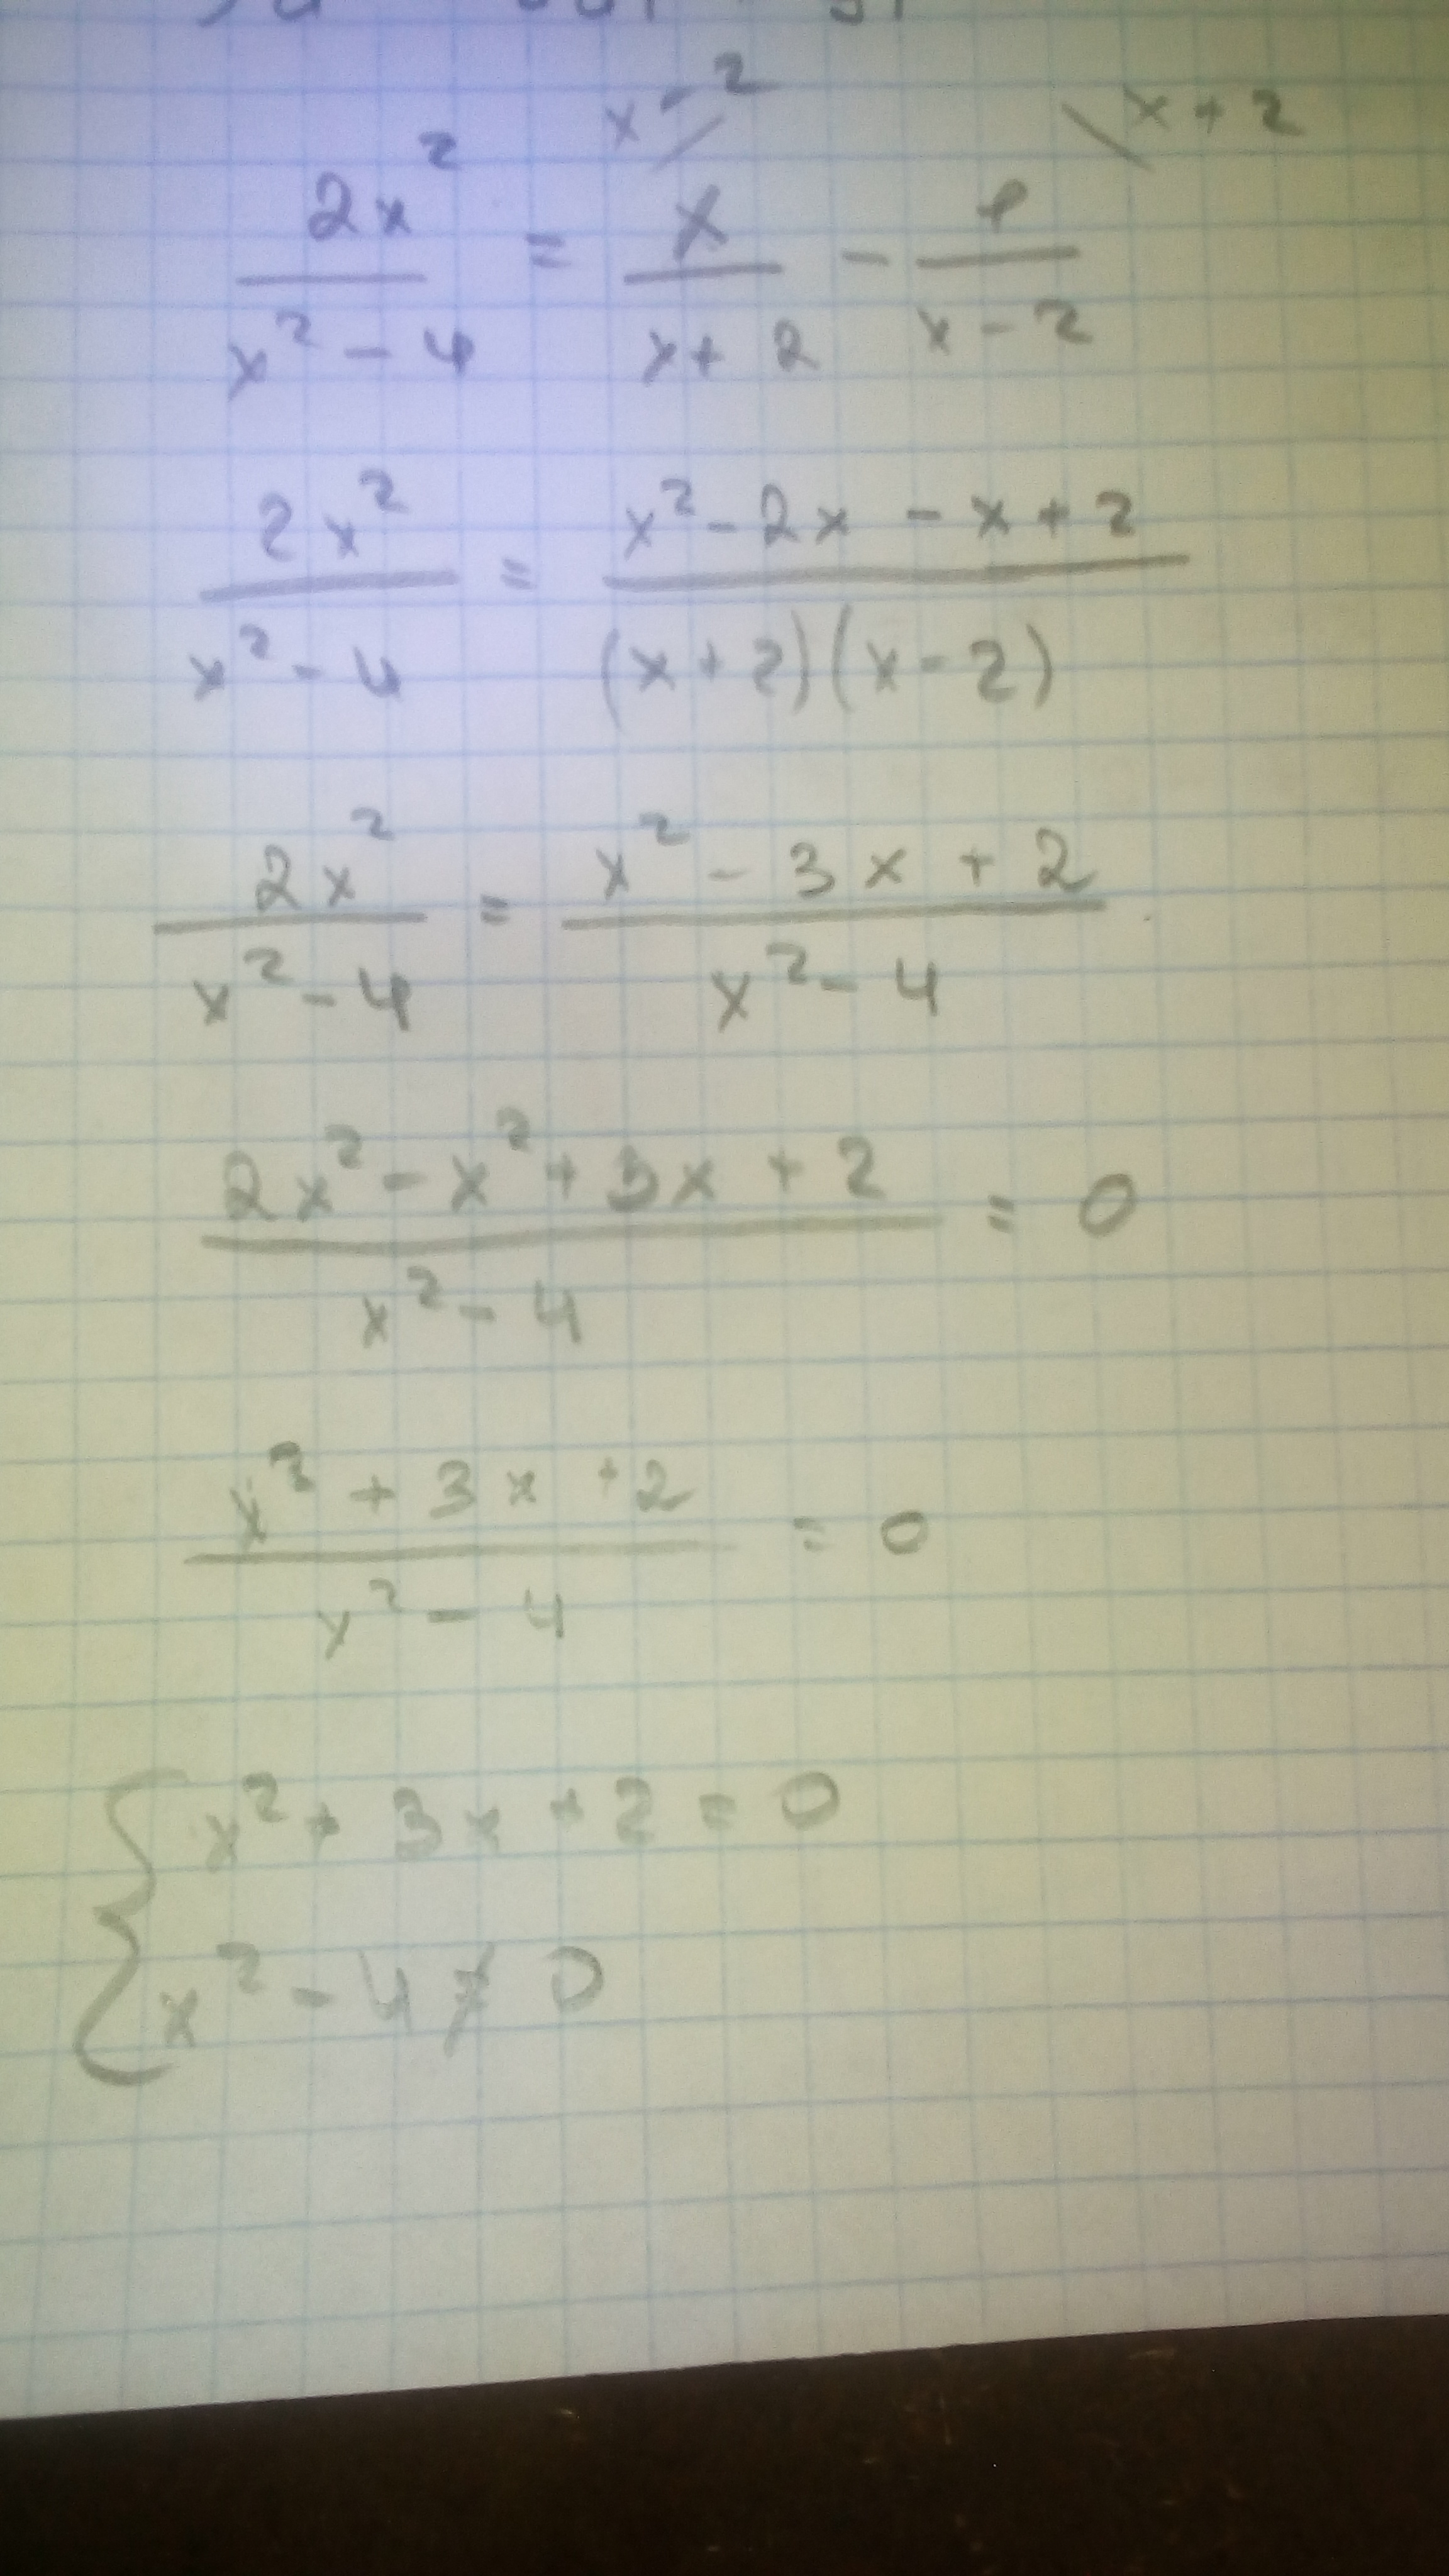 x - 2 x + 2
2x² / x² - 4 = x / x + 2 - 1 / x - 2
2x² / x² - 4 = x² - 2x - x + 2 / (x + 2)(x - 2)
2x² / x² - 4 = x² - 3x + 2 / x² - 4
2x² - x² + 3x + 2 / x² - 4 = 0
x² + 3x + 2 / x² - 4 = 0
{ x² + 3x + 2 = 0
x² - 4 ≠ 0